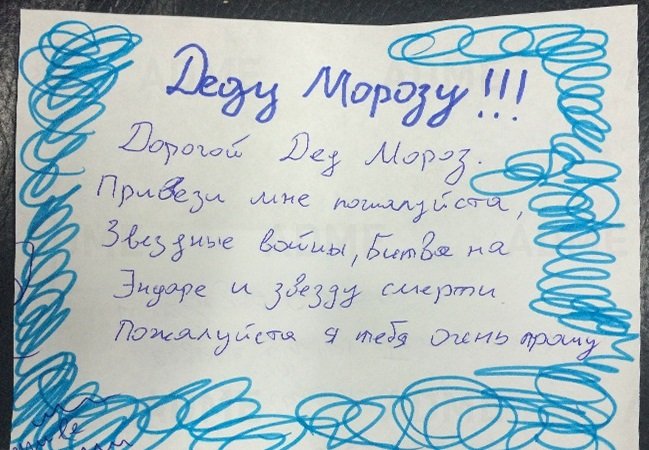 Деду Морозу!!!
Дорогой Дед Мороз.
Привези мне пожалуйста,
Звездные войны, Битва на
Эндаре и звезду смерти
Пожалуйста я тебя очень прошу